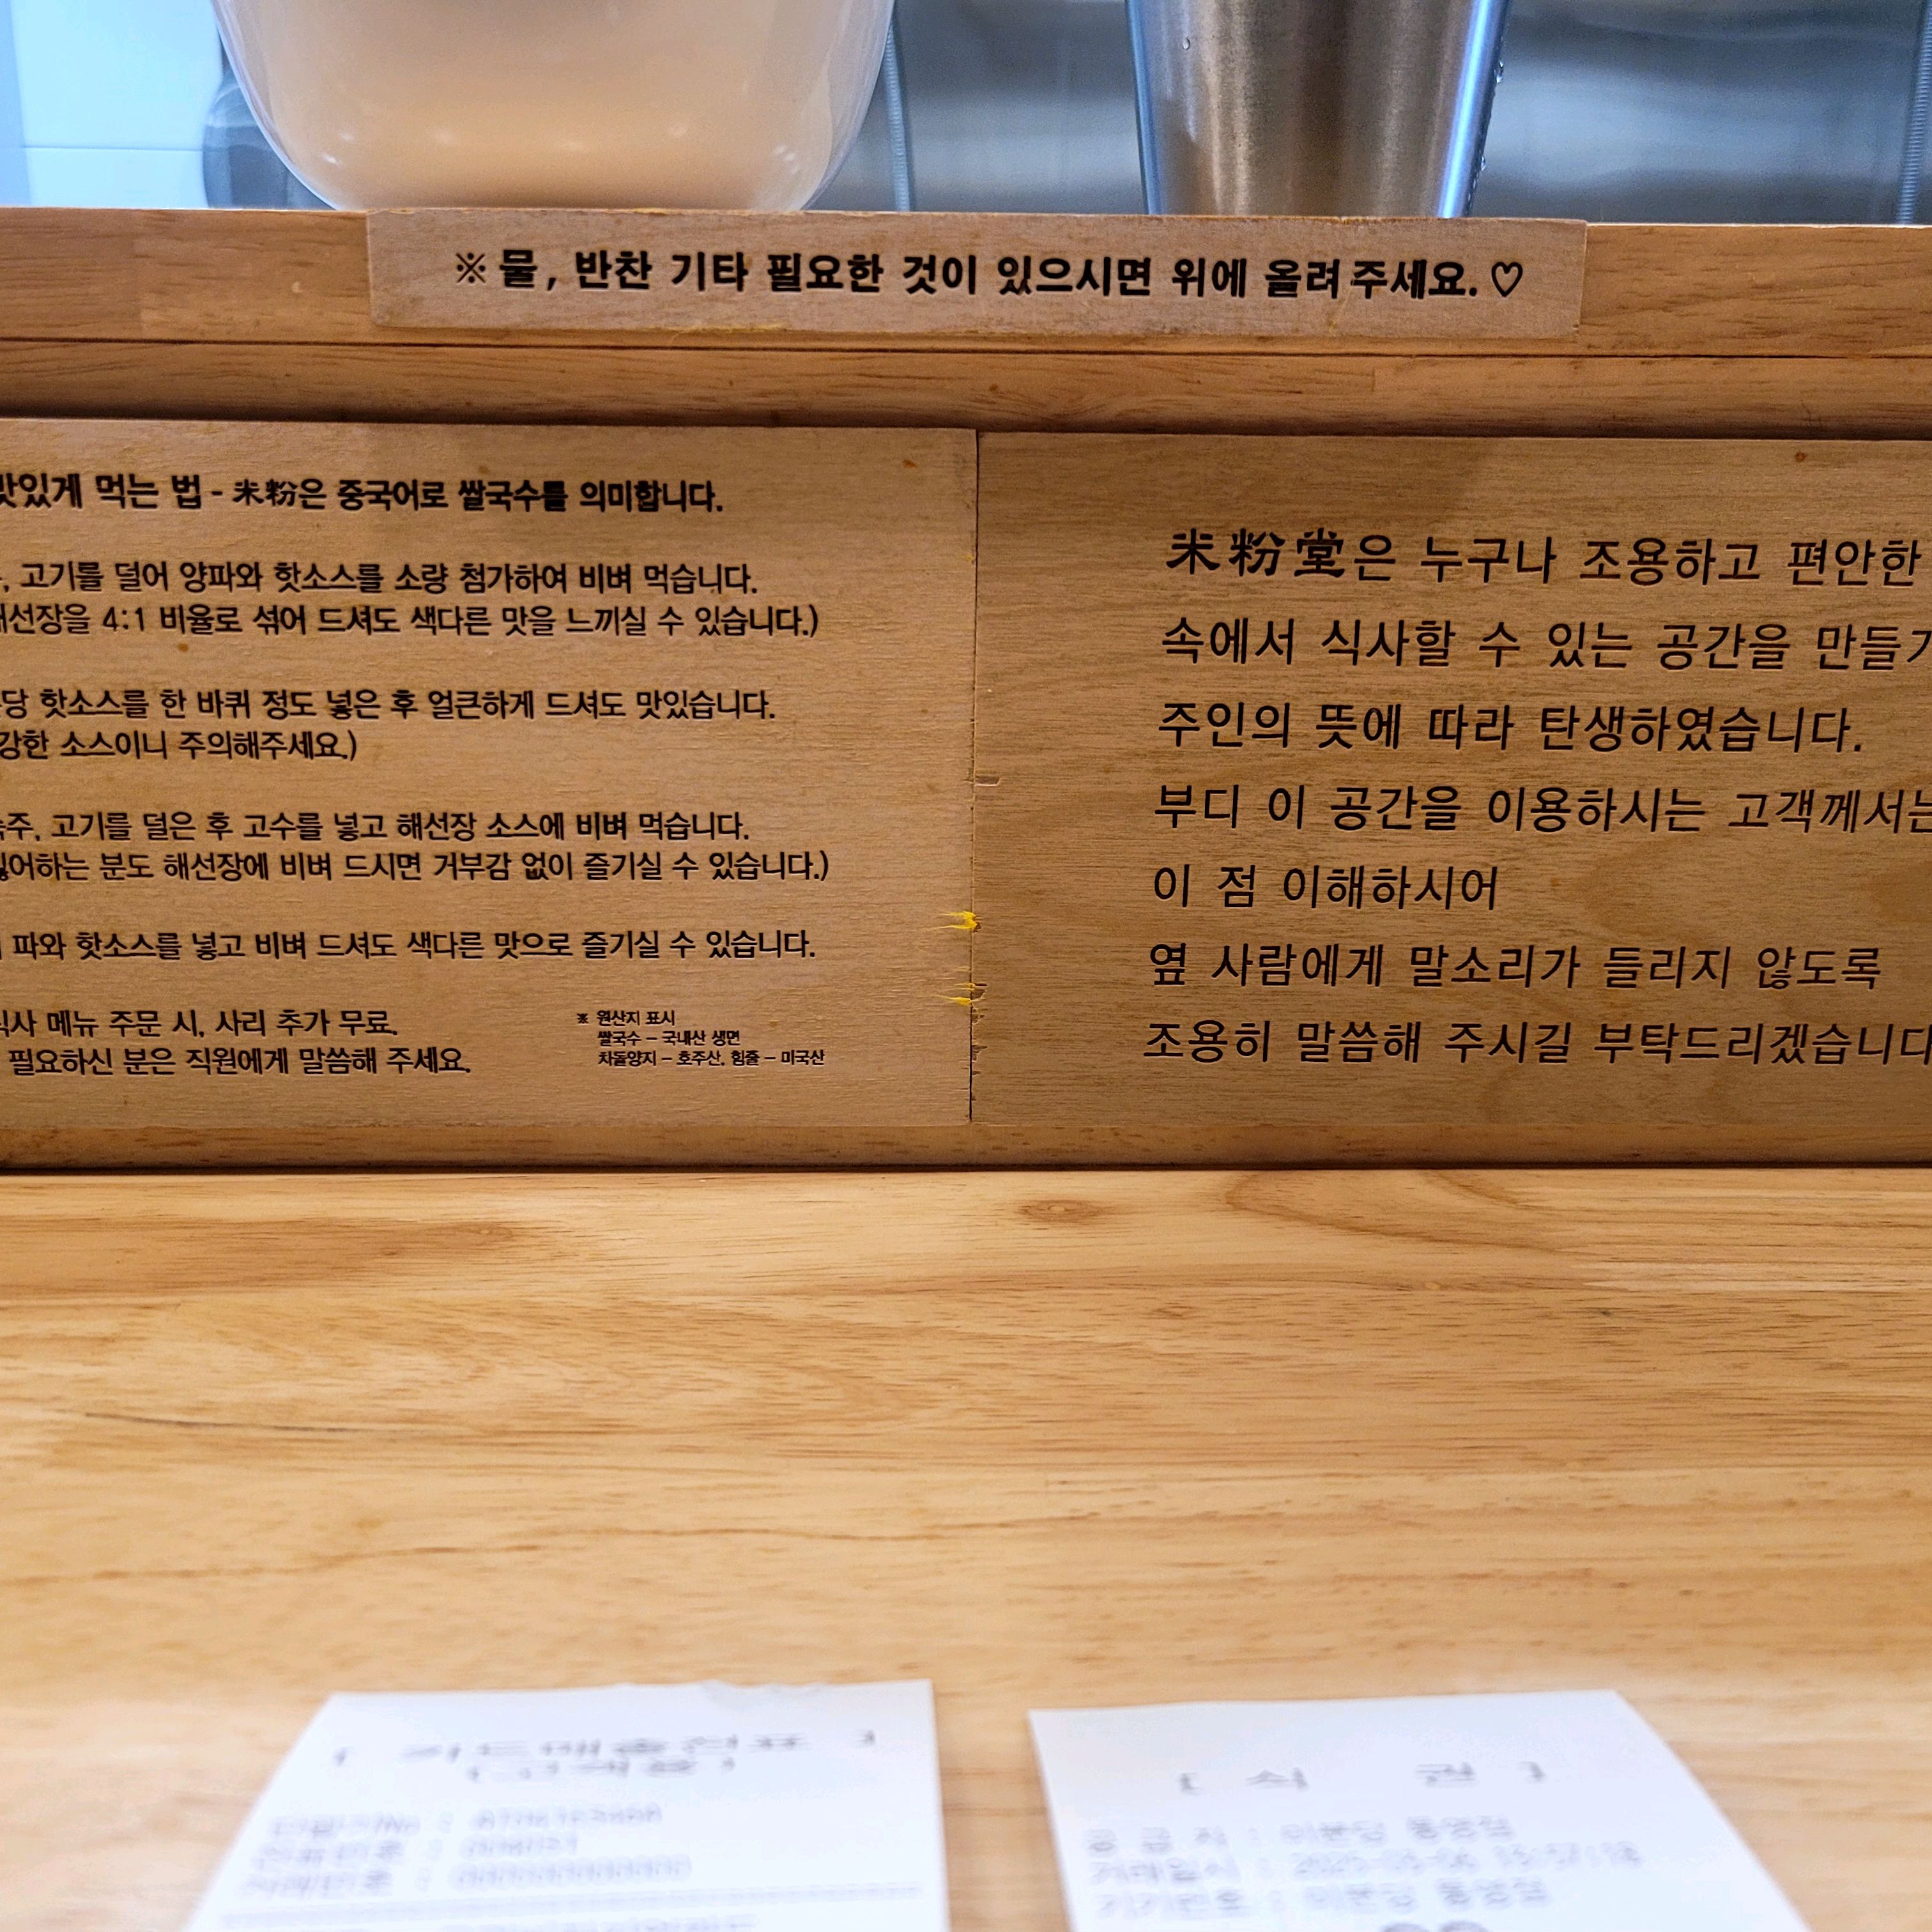 ※ 물, 반찬 기타 필요한 것이 있으시면 위에 올려주세요.♡
맛있게 먹는 법 - 米粉은 중국어로 쌀국수를 의미합니다.
고기를 덜어 양파와 핫소스를 소량 첨가하여 비벼 먹습니다.
해선장을 4:1 비율로 섞어 드셔도 색다른 맛을 느끼실 수 있습니다.)
당 핫소스를 한 바퀴 정도 넣은 후 얼큰하게 드셔도 맛있습니다.
강한 소스이니 주의해주세요.)
숙주, 고기를 덜은 후 고수를 넣고 해선장 소스에 비벼 먹습니다.
싫어하는 분도 해선장에 비벼 드시면 거부감 없이 즐기실 수 있습니다.)
파와 핫소스를 넣고 비벼 드셔도 색다른 맛으로 즐기실 수 있습니다.
식사 메뉴 주문 시, 사리 추가 무료.
필요하신 분은 직원에게 말씀해 주세요.
※ 원산지 표시
쌀국수 – 국내산 생면
차돌양지 – 호주산, 힘줄 – 미국산
米粉堂은 누구나 조용하고 편안한
속에서 식사할 수 있는 공간을 만들기
주인의 뜻에 따라 탄생하였습니다.
부디 이 공간을 이용하시는 고객께서는
이 점 이해하시어
옆 사람에게 말소리가 들리지 않도록
조용히 말씀해 주시길 부탁드리겠습니다
[ 식 권 ]